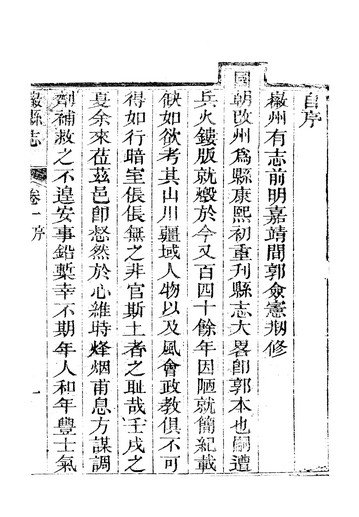 自序
徽州有志前明嘉靖間郭僉憲剏修
國朝改州爲縣康熙初重刊縣志大畧卽郭本也嗣遭
兵火鏤版就燬於今又百四十餘年因陋就簡紀載
缺如欲考其山川疆域人物以及風會政教俱不可
得如行暗室倀倀無之非官斯土者之耻哉壬戌之
夏余來莅茲邑卽惄然於心維時烽烟甫息方謀調
劑補救之不遑安事鉛槧幸不期年人和年豐士氣
徽縣志
卷一序
一